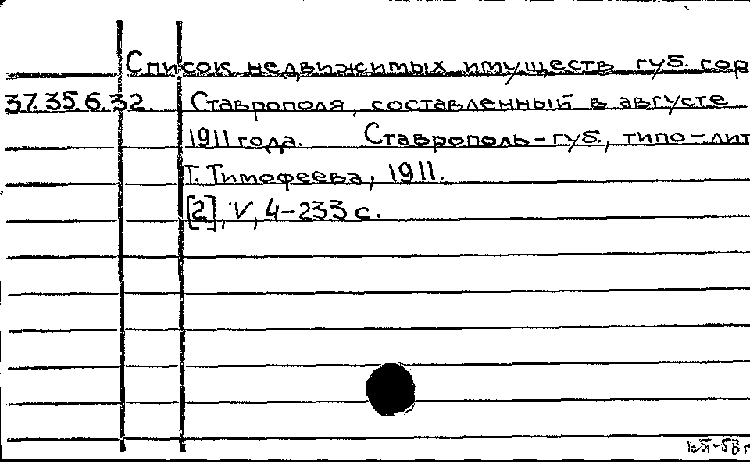 Список недвижимых имуществ губ. гор
37.35.6.32. Ставрополя, составленный в августе
1911 года. Ставрополь-губ., типо-лит
Т. Тимофеева, 1911.
[2], V, 4-233 с.